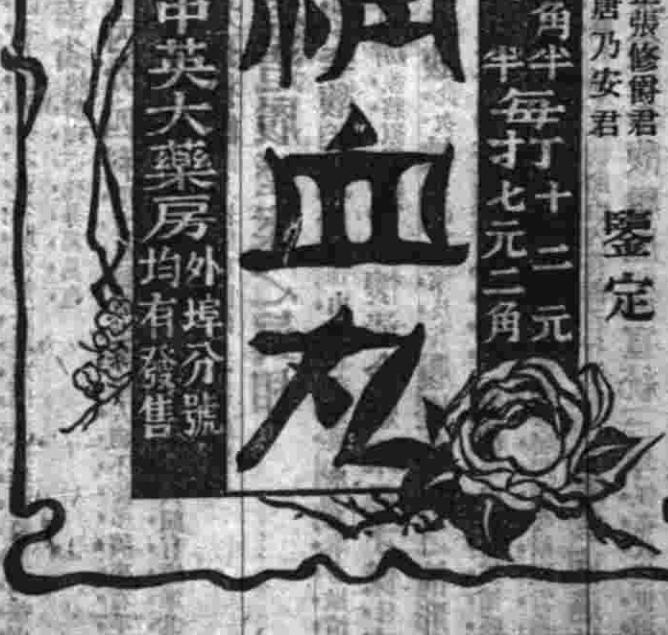 張修爵君
唐乃安君
鑒定
角半
半
每打
十二元
七元二角
血丸
中英大藥房
外埠分號
均有發售